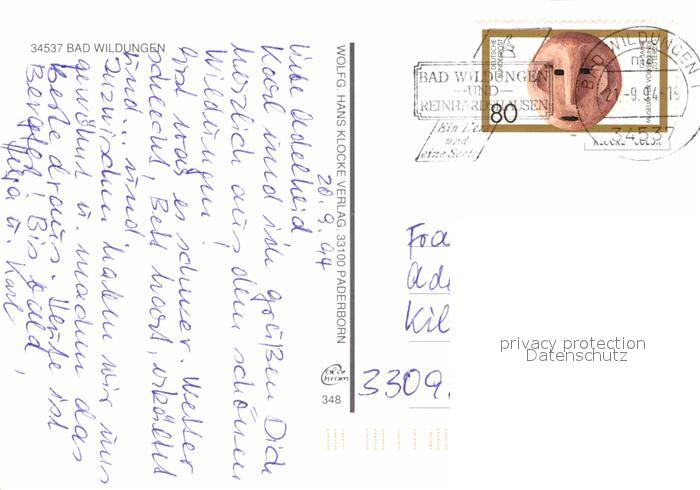 34537 BAD WILDUNGEN
20.9.94
Liebe Adelheid
Karl und ich grüßen Dich
herzlich aus dem schönen
Wildungen!
Erst war es schwer. Wetter
schlecht, Bett hart, erkältet
und.. und.
Inzwischen haben wir uns
gewöhnt u. machen das
beste draus. Heute ist
Bergfest! Bis bald,
u. Karl
WOLFG. HANS KLOCKE VERLAG, 33100 PADERBORN
color
chrom
348
DEUTSCHE BUNDESPOST
80
BAD WILDUNGEN
UND
REINHARDSHAUSEN
Ein Herz
und
eine Seele
BAD WILDUNGEN 1
-9.94-19
34537
Fra
Ade
Kil
3309
privacy protection
Datenschutz